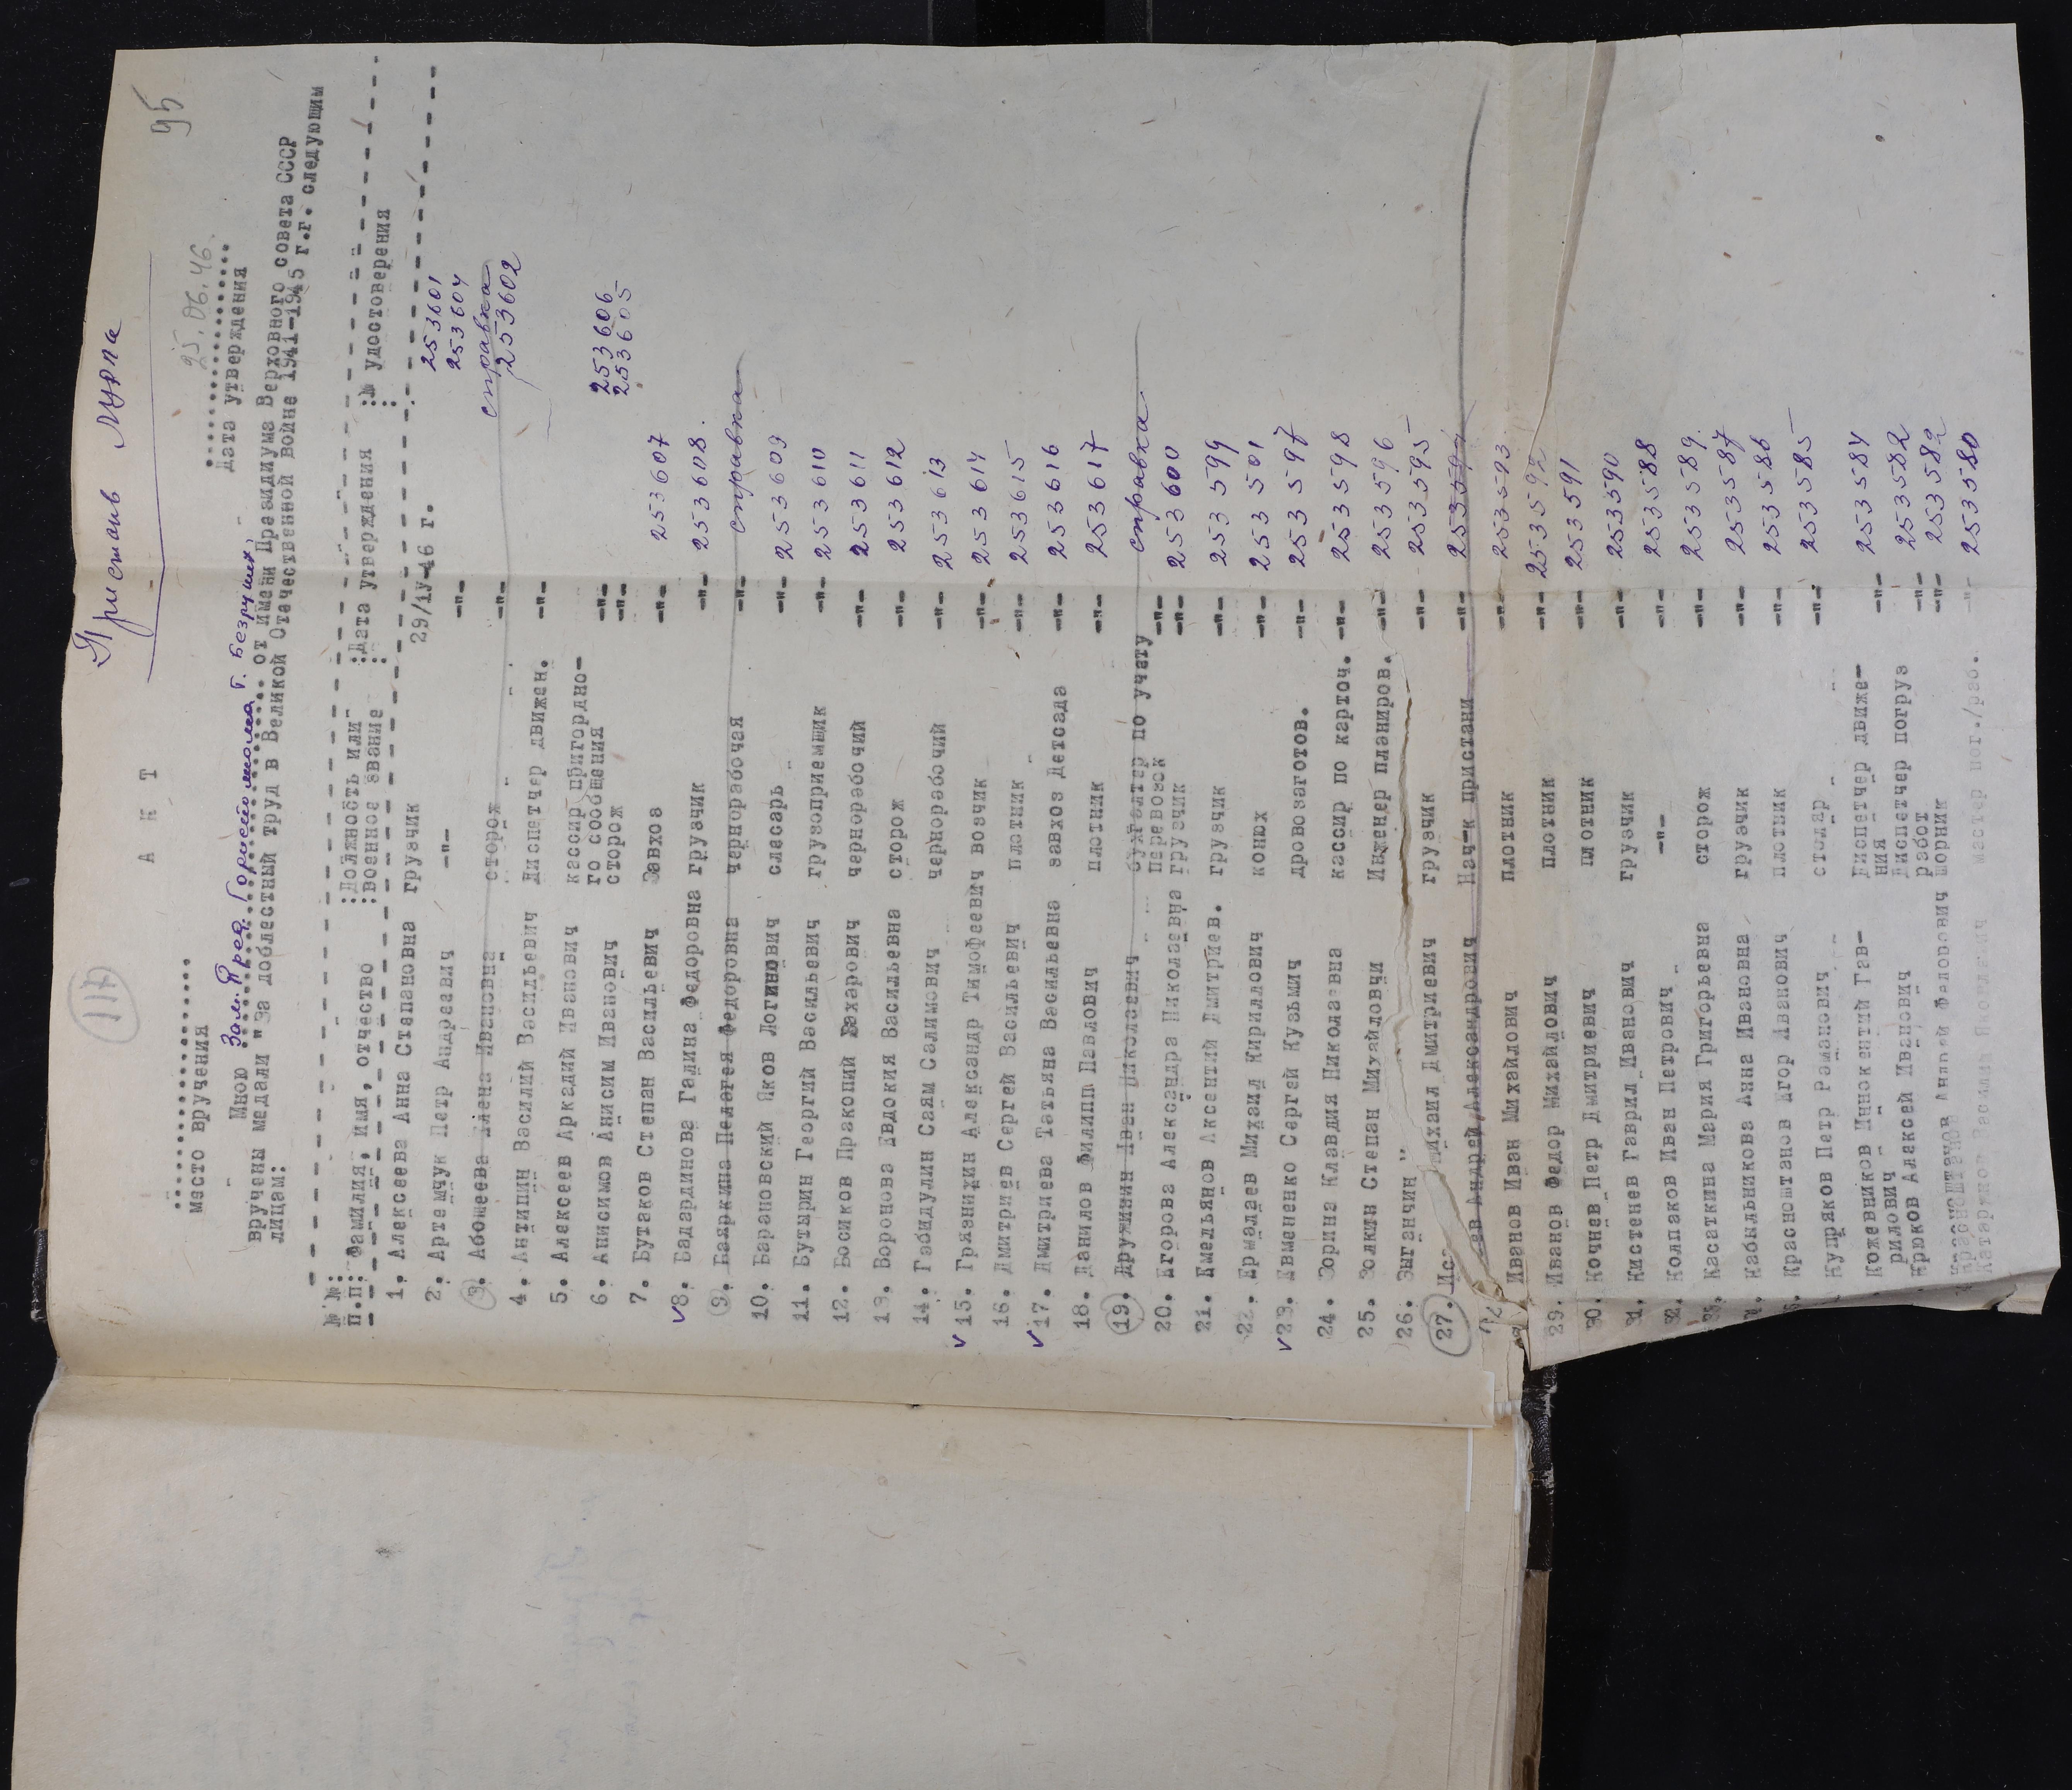 Пристань Лурпа
95
117
А К Т
25.06.46.
Место вручения Дата утверждения
Мною Зам. Пред Горисполкома г. Безруких,
вручены медали "За доблестный труд в Великой Отечественной войне 1941-1945 г.г. следующим
от имени Президиума Верховного совета СССР
лицам:
№№ п.п: Фамилия, имя, отчество :Должность или военное звание :Дата утверждения :№ удостоверения
1. Алексеева Анна Степановна грузчик 29/ІУ-46 г. 253601
2. Артемчук Петр Андреевич -"- -"- 253604
3. Абошеева Елена Ивановна сторож -"- справка
4. Антипин Василий Васильевич Диспетчер движен. -"- 253602
5. Алексеев Аркадий Иванович кассир пригордно-
го сообщения -"- 253606
6. Анисимов Анисим Иванович сторож -"- 253605
7. Бутаков Степан Васильевич Завхоз -"- 253607
8. Бадардинова Галина Федоровна грузчик -"- 253608.
9. Баяркина Пелагея Федоровна чернорабочая -"- справка
10. Барановский Яков Логинович слесарь -"- 253609
11. Бутырин Георгий Васильевич грузоприемщик -"- 253610
12. Босиков Пракопий Захарович чернорабочий -"- 253611
13. Воронова Евдокия Васильевна сторож -"- 253612
14. Габидулин Саям Салимович чернорабочий -"- 253613
15. Грязнихин Александр Тимофеевич возчик -"- 253614
16. Дмитриев Сергей Васильевич плотник -"- 253615
17. Дмитриева Татьяна Васильевна завхоз Детсада -"- 253616
18. Данилов Филипп Павлович плотник -"- 253617
19. Дружинин Иван Николаевич бухгалтер по учету
перевозок -"- справка
20. Егорова Александра Николаевна грузчик -"- 253600
21. Емельянов Аксентий Дмитриев. грузчик -"- 253599
22. Ермалаев Михаил Кириллович конюх -"- 253501
23. Евмененко Сергей Кузьмич дровозаготов. -"- 253597
24. Зорина Клавдия Николаевна кассир по карточ. -"- 253598
25. Золкин Степан Михайловчи Инженер планиров. -"- 253596
26. Зыганчин Михаил Дмитриевич грузчик -"- 253595
27. Ис ев Андрей Александрович Нач-к пристани -"- 253594
Иванов Иван Михайлович плотник -"- 253593.
29. Иванов Федор Михайлович плотник -"- 253592
30. Кочнев Петр Дмитриевич плотник -"- 253591
31. Кистенев Гаврил Иванович грузчик -"- 253590
32. Колпаков Иван Петрович -"- -"- 253588
33. Касаткина Мария Григорьевна сторож -"- 253589.
Кабыльникова Анна Ивановна грузчик -"- 253587
Красноштанов Егор Иванович плотник -"- 253586
Купряков Петр Раманович столяр -"- 253585
Кожевников Иннокентий Гав-
рилович Диспетчер движе-
ния -"- 253584
Крюков Алексей Иванович Диспетчер погруз
работ -"- 253582
Красноштанов Андрей Федорович шорник -"- 253582
Катаржов Василий мастер пог./раб. -"- 253580